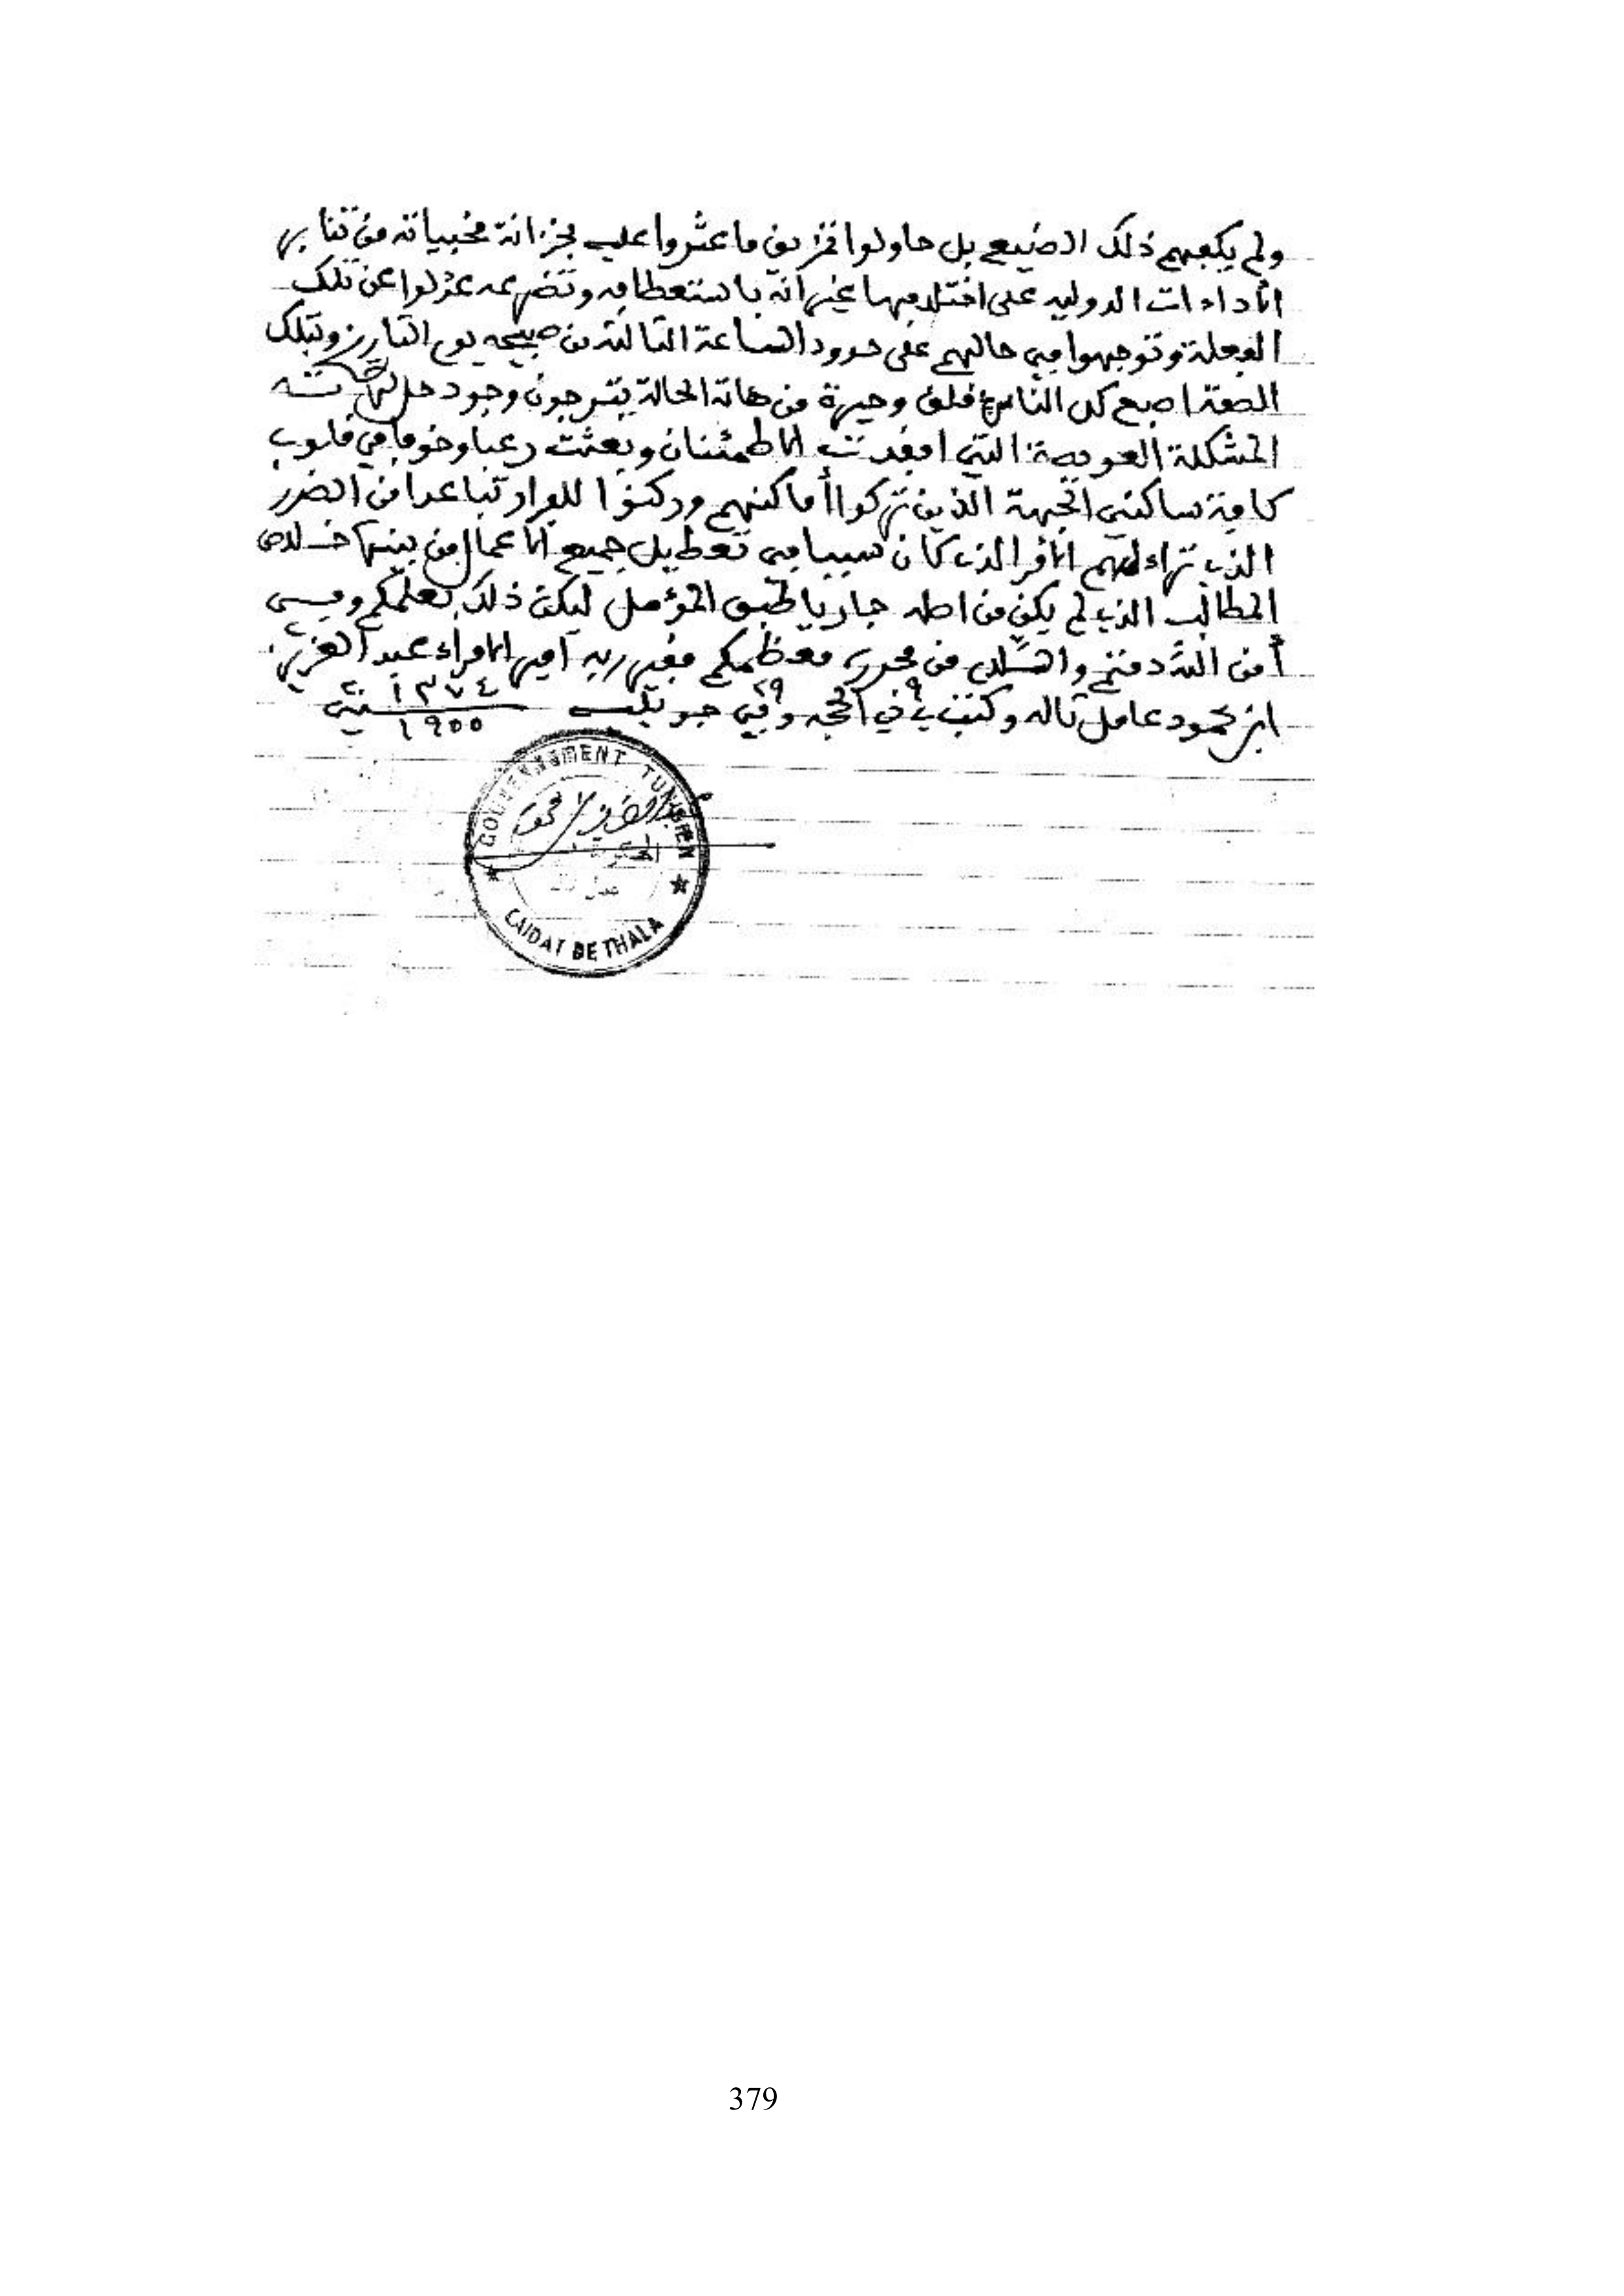 ولم يكفهم ذلك الصنيع بل حاولوا تمزيق ما عثروا عليه بخزانة مخبياته من تنابر
الأداءات الدولية على اختلافها غير انه باستعطافه وتضرعه عزلوا عن تلك
الفعلة وتوجهوا في حالهم على حدود الساعة الثالثة من صبيحة يوم التاريخ وبتلك
الصفة اصبح كل الناس في قلق وحيرة من هاته الحالة يترجون وجود حل لهاته
المشكلة العويصة التي افقدت الاطمئنان وبعثت رعبا وخوفا في قلوب
كافة ساكني الجهة الذين تركوا أماكنهم وركنوا للفرار تباعدا من الضرر
الذي تراء لهم الأمر الذي كان سببا في تعطيل جميع الأعمال من بينها خلاص
المطالب الذي لم يكن من اصله جاريا طبق المؤمل ليكن ذلك بعلمكم وفي
أمن الله دمتم والسلام من محرره معظمكم فقير ربه امير الامراء عبد العزيز
ابن محمود عامل تاله وكتب في ٩ ذي الحجه وفي ٢٩ جويليه ١٣٧٤
١٩٥٥
GOUVERNEMENT TUNISIEN
CAIDAT DE THALA
379